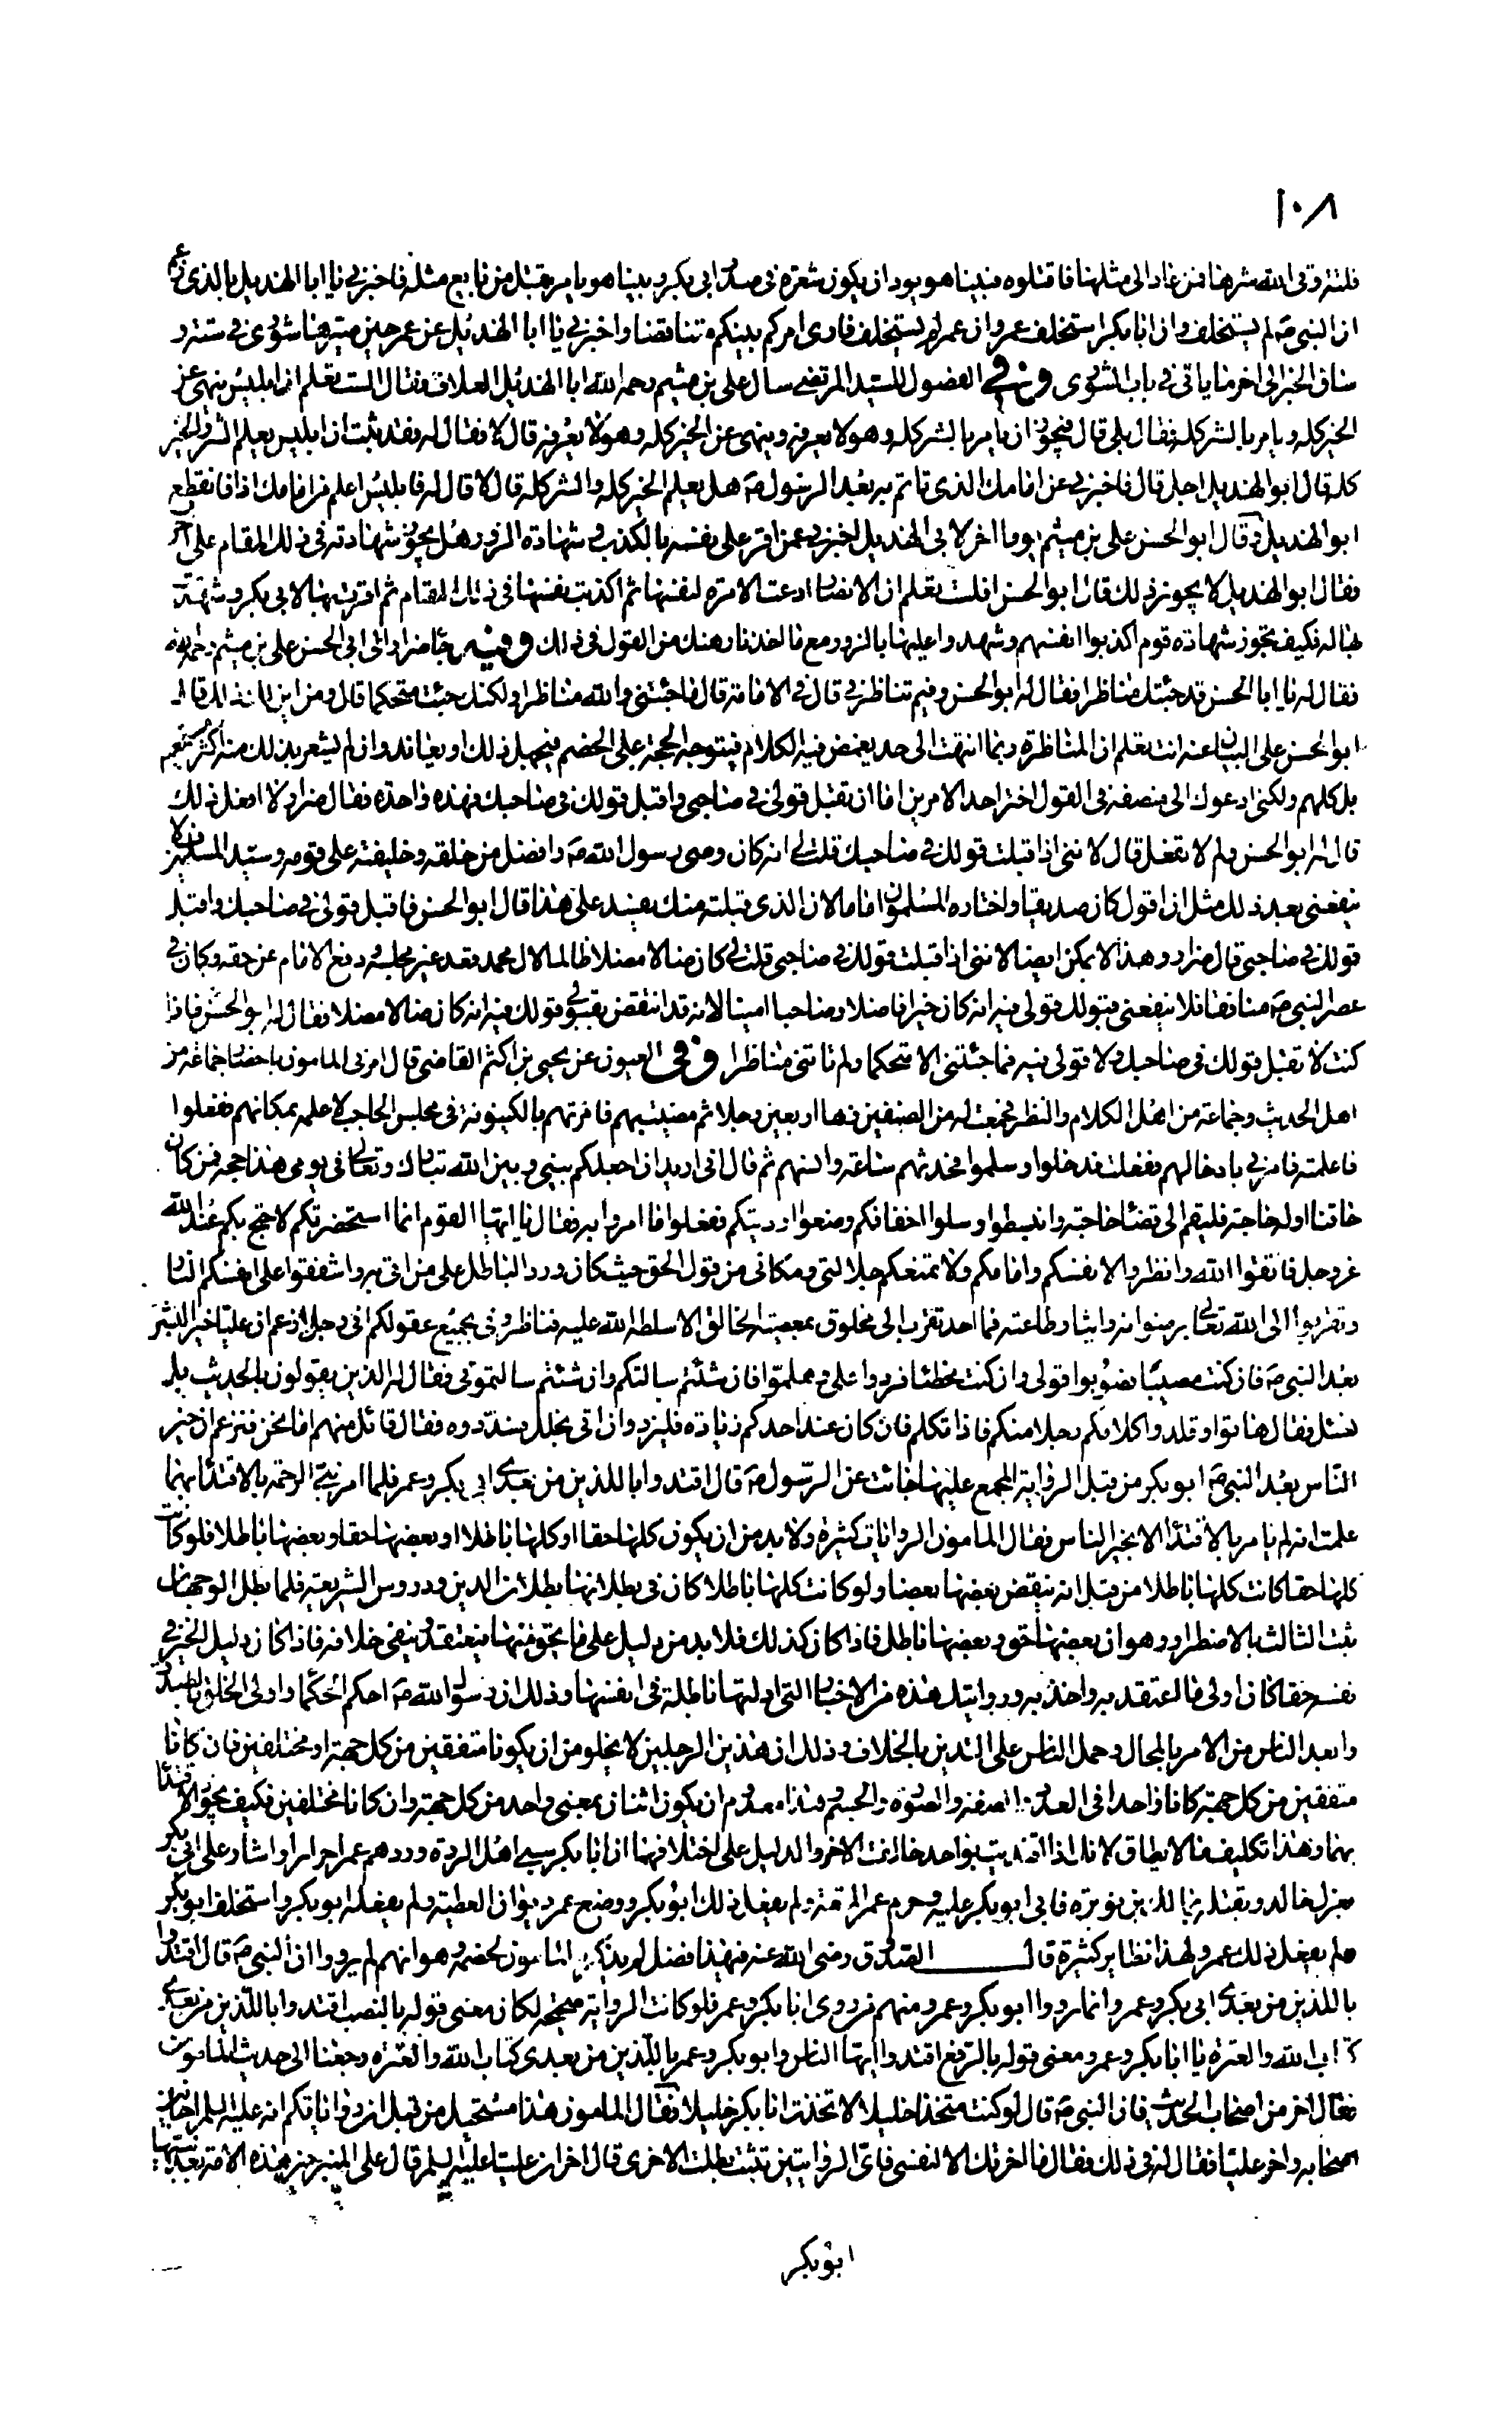 ١٠٨
فلتة وقى الله شرها فمن عاد الى مثلها فاقتلوه فبينا هو يود ان يكون شعرة فى صدر ابى بكر وبينا هو يامر بقتل من بايع مثله فاخبرنى يا ابا الهذيل بالذى زعم
ان النبى ص لم يستخلف وان ابا بكر استخلف عمر وان عمر لم يستخلف فارى امركم بينكم متناقضا واخبرنى يا ابا الهذيل عن عمر حين صيرها شورى فى ستة و
ساق الخبر الى اخر ما ياتى فى باب الشورى وفى الفصول للسيد المرتضى سال على بن ميثم رحمه الله ابا الهذيل العلاف فقال الست تعلم ان ابليس ينهى عن
الخير كله ويامر بالشر كله فقال بلى قال فيجوز ان يامر بالشر كله وهو لا يعرفه وينهى عن الخير كله وهو لا يعرفه قال لا فقال له فقد ثبت ان ابليس يعلم الشر والخير
كله قال ابو الهذيل اجل قال فاخبرنى عن امامك الذى تاتم به بعد الرسول ص هل يعلم الخير كله والشر كله قال لا قال له فابليس اعلم من امامك اذا فانقطع
ابو الهذيل وقال ابو الحسن على بن ميثم يوما اخر لابى الهذيل اخبرنى عمن اقر على نفسه بالكذب وشهادة الزور هل يجوز شهادته فى ذلك المقام على اخر
فقال ابو الهذيل لا يجوز ذلك قال ابو الحسن افلست تعلم ان الانصار ادعت الامرة لنفسها ثم اكذبت نفسها فى ذلك المقام ثم اقرت بها لابى بكر وشهدت
بها له فكيف تجوز شهادة قوم اكذبوا انفسهم وشهدوا عليها بالزور مع ما اخذنا رهنك من القول فى ذلك وفيه جاء ضرار الى ابى الحسن على بن ميثم رحمه الله
فقال له يا ابا الحسن قد جئتك مناظرا فقال له ابو الحسن وفيم تناظرنى قال فى الامامة قال ما جئتنى والله مناظرا ولكنك جئت متحكما قال ومن اين لك ذلك قال
ابو الحسن على البيان عنه انت تعلم ان المناظرة ربما انتهت الى حد يغمض فيه الكلام فيتوجه الحجة على الخصم فيجهل ذلك او يعاند وان لم يشعر بذلك منه اكثر مستمعيه
بل كلهم ولكنى ادعوك الى منصفة فى القول اختر احد الامرين اما ان تقبل قولى فى صاحبى واقبل قولك فى صاحبك فهذه واحدة فقال ضرار لا افعل ذلك
قال له ابو الحسن ولم لا تفعل قال لاننى اذا قبلت قولك فى صاحبك قلت لى انه كان وصى رسول الله ص وافضل من خلفه وخليفته على قومه وسيد المسلمين فلا
ينفعنى بعد ذلك مثل ان اقول كان صديقا واختاره المسلمون اماما لان الذى قبلته منك يفسد على هذا قال ابو الحسن فاقبل قولى فى صاحبك واقبل
قولك فى صاحبى قال ضرار وهذا لا يمكن ايضا لاننى اذا قبلت قولك فى صاحبى قلت لى كان ضالا مضلا ظالما لال محمد قعد غير مجلسه ودفع الامام عن حقه وكان فى
عصر النبى ص منافقا فلا ينفعنى قبولك قولى فيه انه كان خيرا فاضلا وصاحبا امينا لانه قد انتقض بقبولى قولك فيه انه كان ضالا مضلا فقال له ابو الحسن فاذا
كنت لا تقبل قولك فى صاحبك ولا قولى فيه فما جئتنى الا متحكما ولم تاتنى مناظرا وفى العيون عن يحيى بن اكثم القاضى قال امرنى المامون باحضار جماعة من
اهل الحديث وجماعة من اهل الكلام والنظر فجمعت له من الصنفين زهاء اربعين رجلا ثم مضيت بهم فامرتهم بالكينونة فى مجلس الحاجب لاعلمه بمكانهم ففعلوا
فاعلمته فامرنى بادخالهم ففعلت فدخلوا وسلموا فحدثهم ساعة وانسهم ثم قال انى اريد ان اجعلكم بينى وبين الله تبارك وتعالى فى يومى هذا حجة فمن كان
حاقنا او له حاجة فليقم الى قضاء حاجته وانبسطوا وسلوا اخفافكم وضعوا ارديتكم ففعلوا ما امروا به فقال يا ايها القوم انما استحضرتكم لاحتج بكم عند الله
عز وجل فاتقوا الله وانظروا لانفسكم وامامكم ولا تمنعكم جلالتى ومكانى من قول الحق حيث كان ورد الباطل على من اتى به واشفقوا على انفسكم النار
وتقربوا الى الله تعالى برضوانه وايثار طاعته فما احد تقرب الى مخلوق بمعصية الخالق الا سلطه الله عليه فناظرونى بجميع عقولكم انى رجل ازعم ان عليا خير البشر
بعد النبى ص فان كنت مصيبا فصوبوا قولى وان كنت مخطئا فردوا على وهلموا فان شئتم سالتكم وان شئتم سالتمونى فقال له الذين يقولون بالحديث بل
نسئل فقال هاتوا وقلدوا كلامكم رجلا منكم فاذا تكلم فان كان عند احدكم زيادة فليزد وان اتى بخلل فسددوه فقال قائل منهم اما نحن فنزعم ان خير
الناس بعد النبى ص ابو بكر من قبل الرواية المجمع عليها جائت عن الرسول ص قال اقتدوا باللذين من بعدى ابى بكر وعمر فلما امر نبى الرحمة بالاقتداء بهما
علمت انه لم يامر بالاقتداء الا بخير الناس فقال المامون الروايات كثيرة ولا بد من ان يكون كلها حقا او كلها باطلا او بعضها حقا وبعضها باطلا فلو كانت
كلها حقا كانت كلها باطلا من قبل انه ينقض بعضها بعضا ولو كانت كلها باطلا كان فى بطلانها بطلان الدين ودروس الشريعة فلما بطل الوجهان
ثبت الثالث بالاضطرار وهو ان بعضها حق وبعضها باطل فاذا كان كذلك فلا بد من دليل على ما يحق منها ليعتقد وينفى خلافه فاذا كان دليل الخبر فى
نفسه حقا كان اولى ما اعتقد به واخذ به وروايتك هذه من الاخبار التى ادلتها باطلة فى انفسها وذلك ان رسول الله ص احكم الحكماء واولى الخلق بالصدق
وابعد الناس من الامر بالمحال وحمل الناس على التدين بالخلاف وذلك ان هذين الرجلين لا يخلو من ان يكونا متفقين من كل جهة او مختلفين فان كانا
متفقين من كل جهة كانا واحدا فى العدد والصفة والصورة والجسم وهذا معدوم ان يكون اثنان بمعنى واحد من كل جهة وان كانا مختلفين فكيف يجوز الاقتداء
بهما وهذا تكليف ما لا يطاق لانك اذا اقتديت بواحد خالفت الاخر والدليل على اختلافهما ان ابا بكر سبى اهل الردة وردهم عمر احرارا واشار على ابى بكر
بعزل خالد وبقتله بمالك بن نويرة فابى ابو بكر عليه وحرم عمر المتعة ولم يفعل ذلك ابو بكر ووضع عمر ديوان العطية ولم يفعله ابو بكر واستخلف ابو بكر
ولم يفعل ذلك عمر ولهذا نظاير كثيرة قال الصدوق رضى الله عنه فى هذا فصل لم يذكره المامون لخصمه وهو انهم لم يرووا ان النبى ص قال اقتدوا
باللذين من بعدى ابى بكر وعمر وانما رووا ابو بكر وعمر ومنهم من روى ابا بكر وعمر فلو كانت الرواية صحيحة لكان معنى قوله بالنصب اقتدوا باللذين من بعدى
كتاب الله والعترة يا ابا بكر وعمر ومعنى قوله بالرفع اقتدوا ايها الناس وابو بكر وعمر باللذين من بعدى كتاب الله والعترة رجعنا الى حديث المامون
فقال اخر من اصحاب الحديث فان النبى ص قال لو كنت متخذا خليلا لاتخذت ابا بكر خليلا فقال المامون هذا مستحيل من قبل ان رواياتكم انه عليه السلم اخا بين
اصحابه واخر عليا فقال له فى ذلك فقال ما اخرتك الا لنفسى فاى الروايتين تثبت بطلت الاخرى قال اخر ان عليا عليه السلم قال على المنبر خير هذه الامة بعد نبيها
ابو بكر